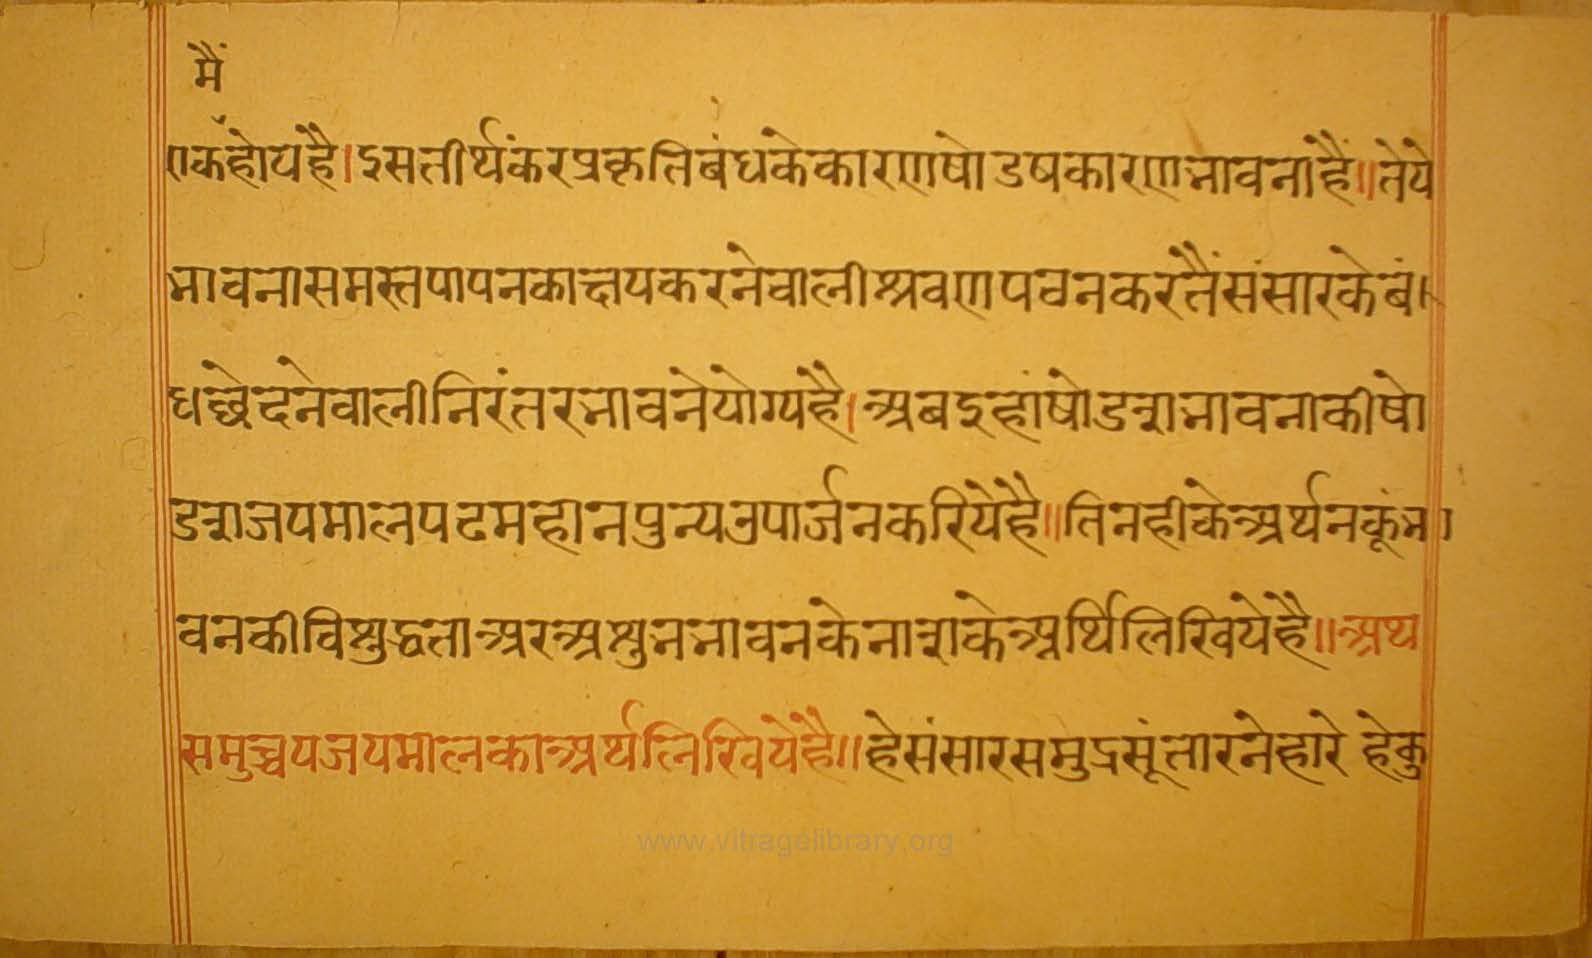 मैं
णकहोयहै।इसतीर्थंकरप्रकृतिबंधकेकारणषोडषकारणभावनाहैं॥तेये
भावनासमस्तपापनकाक्षयकरनेवालीश्रवणपठनकरतैंसंसारकेबं।
धछेदनेवालीनिरंतरभावनेयोग्यहै।अबइहांषोडशभावनाकीषो
डशजयमालपढमहानपुन्यउपार्जनकरियेहै॥तिनहीकेअर्थनकूंभा
वनकीविशुद्धताअरअशुभभावनकेनाशकेअर्थिलिखियेहै॥अथ
समुच्चयजयमालकाअर्थलिखियेहै॥हेसंसारसमुद्रसूंतारनेहारे हेकु
www.vitragelibrary.org